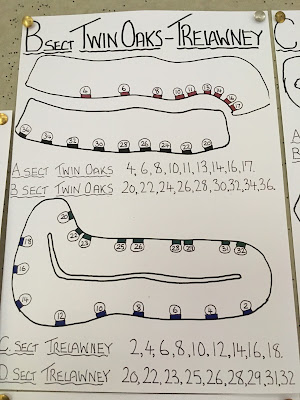 B SECT TWIN OAKS - TRELAWNEY
4 6 8 10 11 13 14 16 17
36 34 32 30 28 26 24 22 20
A SECT TWIN OAKS 4,6,8,10,11,13,14,16,17.
B SECT TWIN OAKS 20,22,24,26,28,30,32,34,36.
20 22 23 25 26 28 29 31 32
18
16
14 12 10 8 6 4 2
C SECT TRELAWNEY 2,4,6,8,10,12,14,16,18.
D SECT TRELAWNEY 20,22,23,25,26,28,29,31,32
C